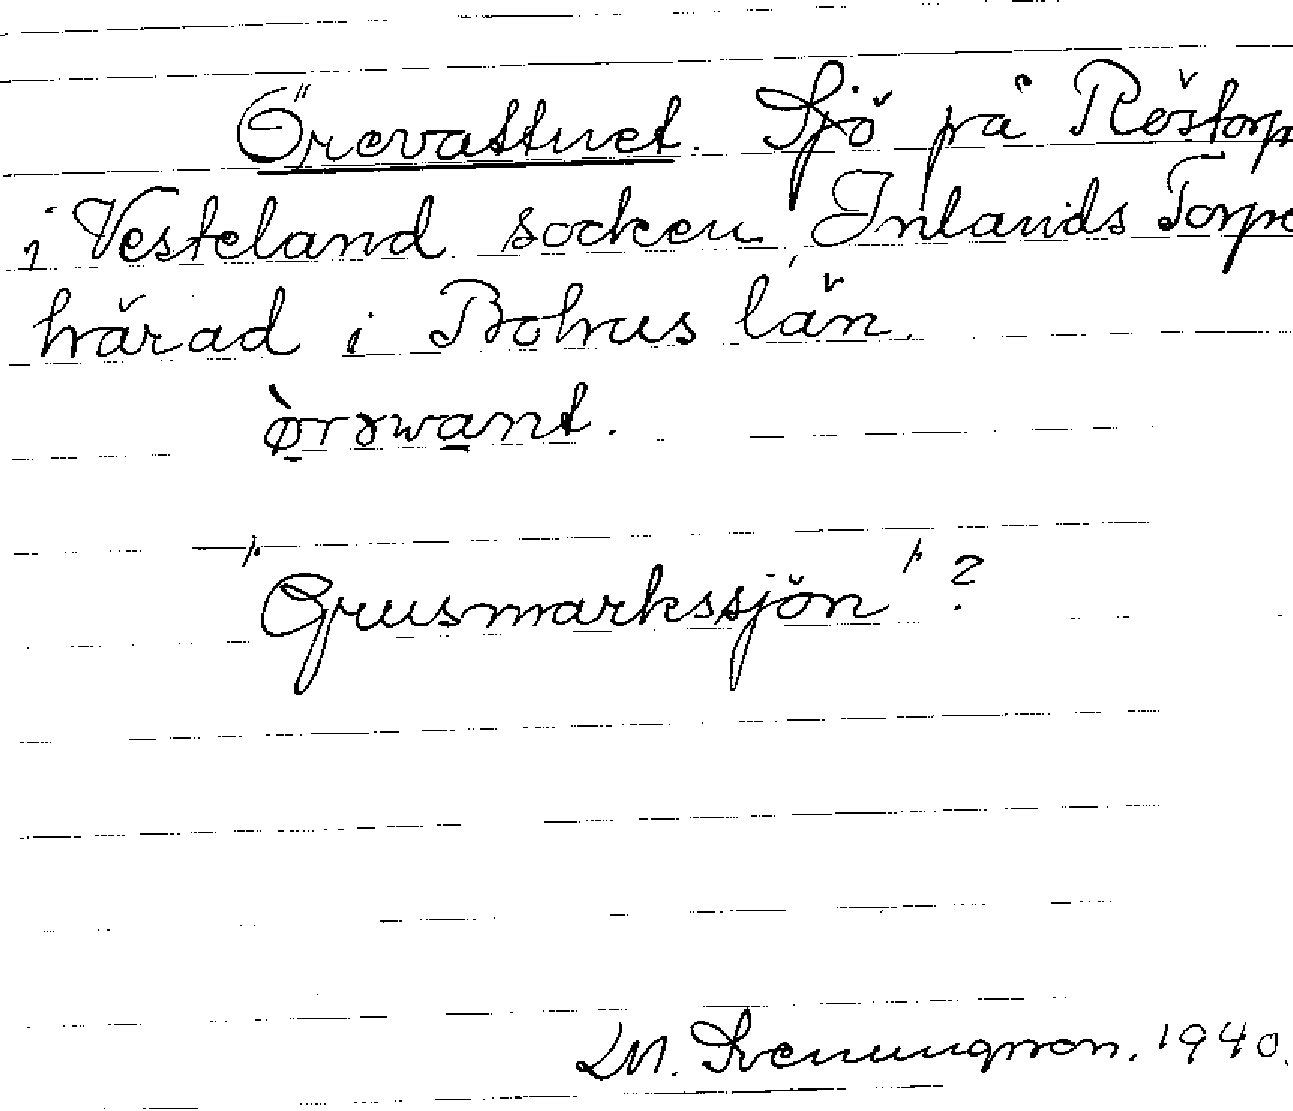 Örevattnet. Sjö på Röstorp
i Vesteland socken, Inlands Torpe
härad i Bohus län.
ò̱rɤwa̱nt.
"Grusmarkssjön" ?
M. Svenungsson. 1940.